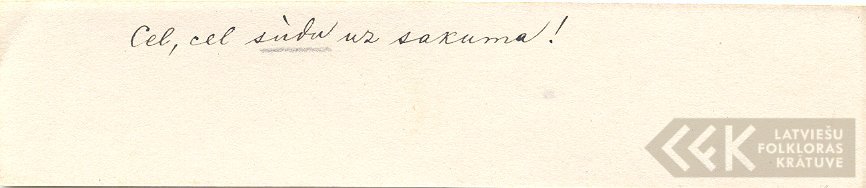 Cel, cel sùdu uz sakuma!
LFK
LATVIEŠU
FOLKLORAS
KRĀTUVE